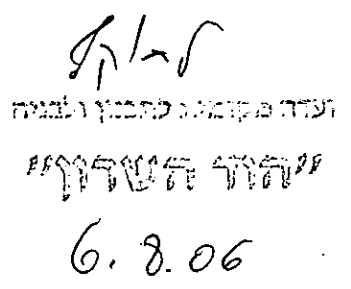 ועדה מקומית לתכנון ולבניה
"הוד השרון"
6.8.06